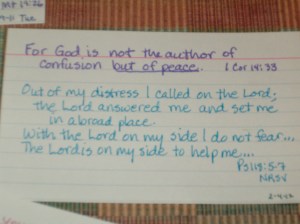 Mt 19:26
Tue
For God is not the author of
confusion but of peace. 1 Cor 14:33
Out of my distress I called on the Lord;
the Lord answered me and set me
in a broad place.
With the Lord on my side I do not fear...
The Lord is on my side to help me....
Ps 118:5-7
NRSV